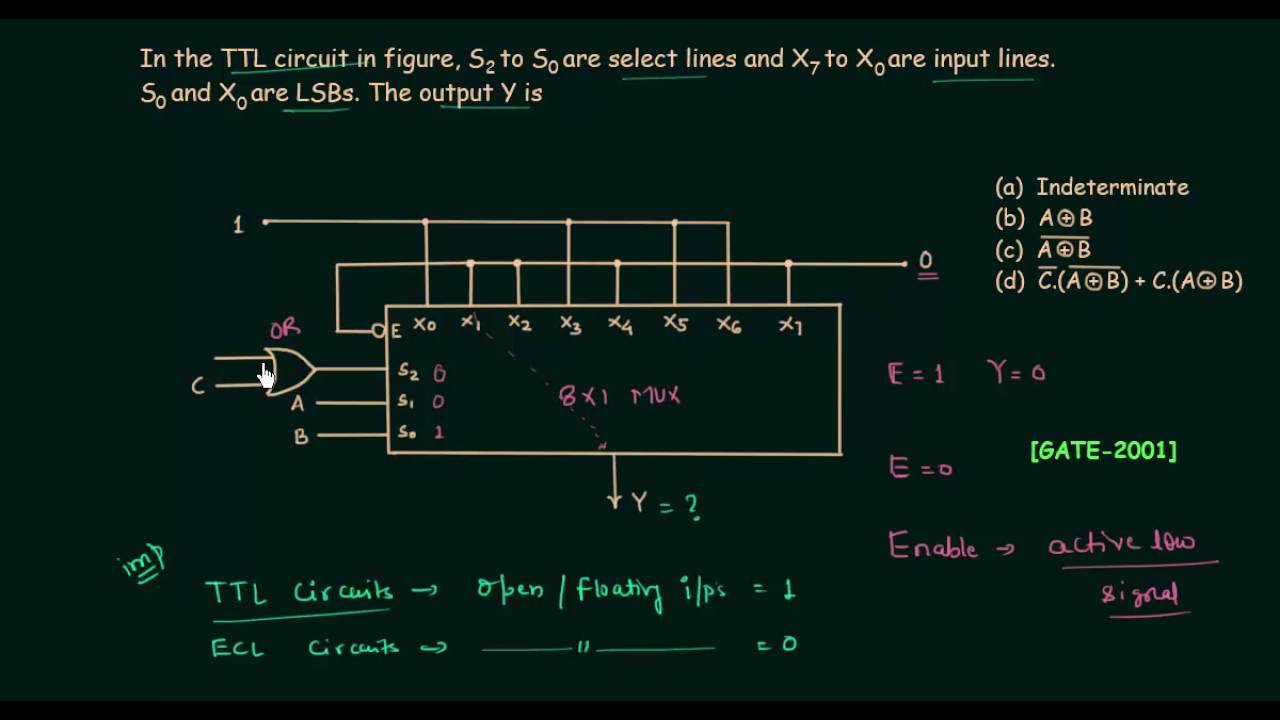 In the TTL circuit in figure, S₂ to S₀ are select lines and X₇ to X₀ are input lines.
S₀ and X₀ are LSBs. The output Y is
(a) Indeterminate
(b) A⊕B
(c) A̅⊕̅B̅
(d) C̅.(A̅⊕̅B̅) + C.(A⊕B)
1
0
E X₀ X₁ X₂ X₃ X₄ X₅ X₆ X₇
OR
C
A
B
S₂ 0
S₁ 0
S₀ 1
8X1 MUX
Y = ?
E = 1 Y = 0
[GATE-2001]
E = 0
Enable → active low
signal
imp
TTL Circuits → open / floating i/ps = 1
ECL Circuits → —— " —— = 0